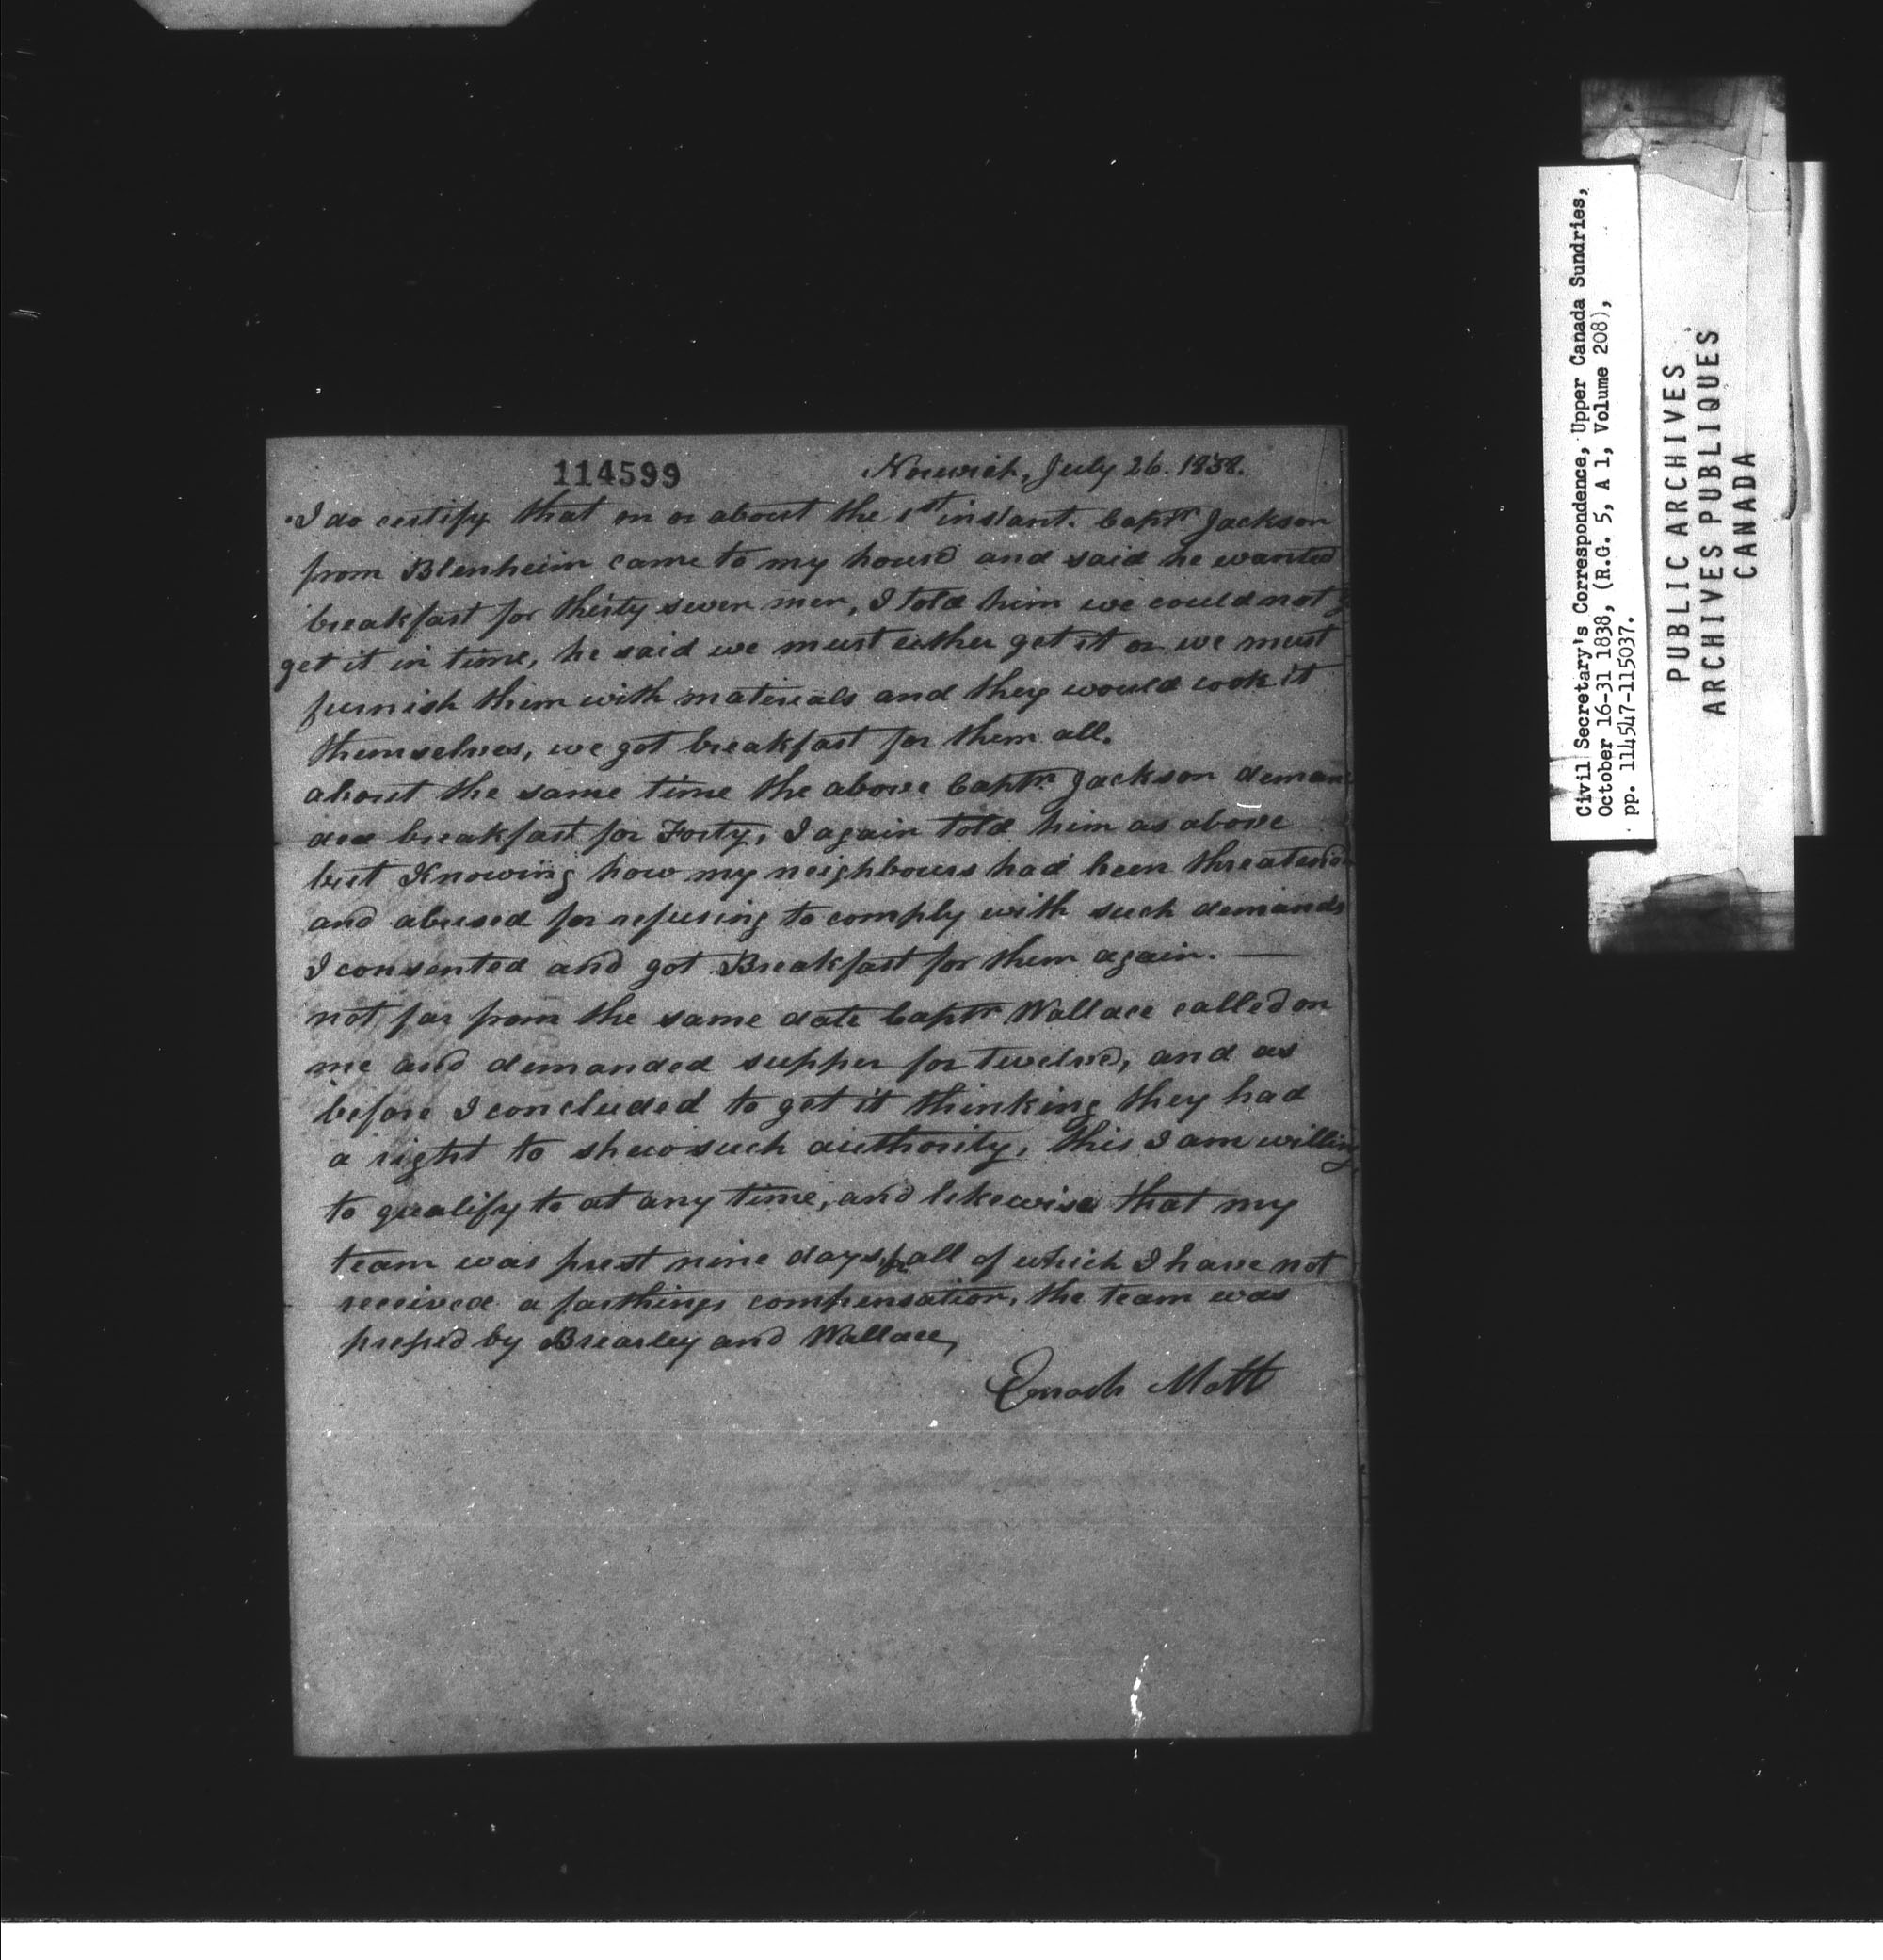 114599
Norwich, July 26. 1838.
I do certify that on or about the 1st instant. Captn Jackson
from Blenheim came to my house and said he wanted
breakfast for thirty seven men, I told him we could not
get it in time, he said we must either get it or we must
furnish them with materials and they would cook it
themselves, we got breakfast for them all.
about the same time the above Captn Jackson deman
ded breakfast for Forty, I again told him as above
but Knowing how my neighbours had been threatened
and abused for refusing to comply with such demands
I consented and got Breakfast for them again. —
not far from the same date Captn Wallace called on
me and demanded supper for twelve, and as
before I concluded to get it thinking they had
a right to shew such authority, this I am willing
to qualify to at any time, and likewise that my
team was prest nine days, for all of which I have not
received a farthings compensation, the team was
pressed by Brearley and Wallace,
Enoch Mott
Civil Secretary's Correspondence, Upper Canada Sundries,
October 16-31 1838, (R.G. 5, A 1, Volume 208),
pp. 114547-115037.
PUBLIC ARCHIVES
ARCHIVES PUBLIQUES
CANADA